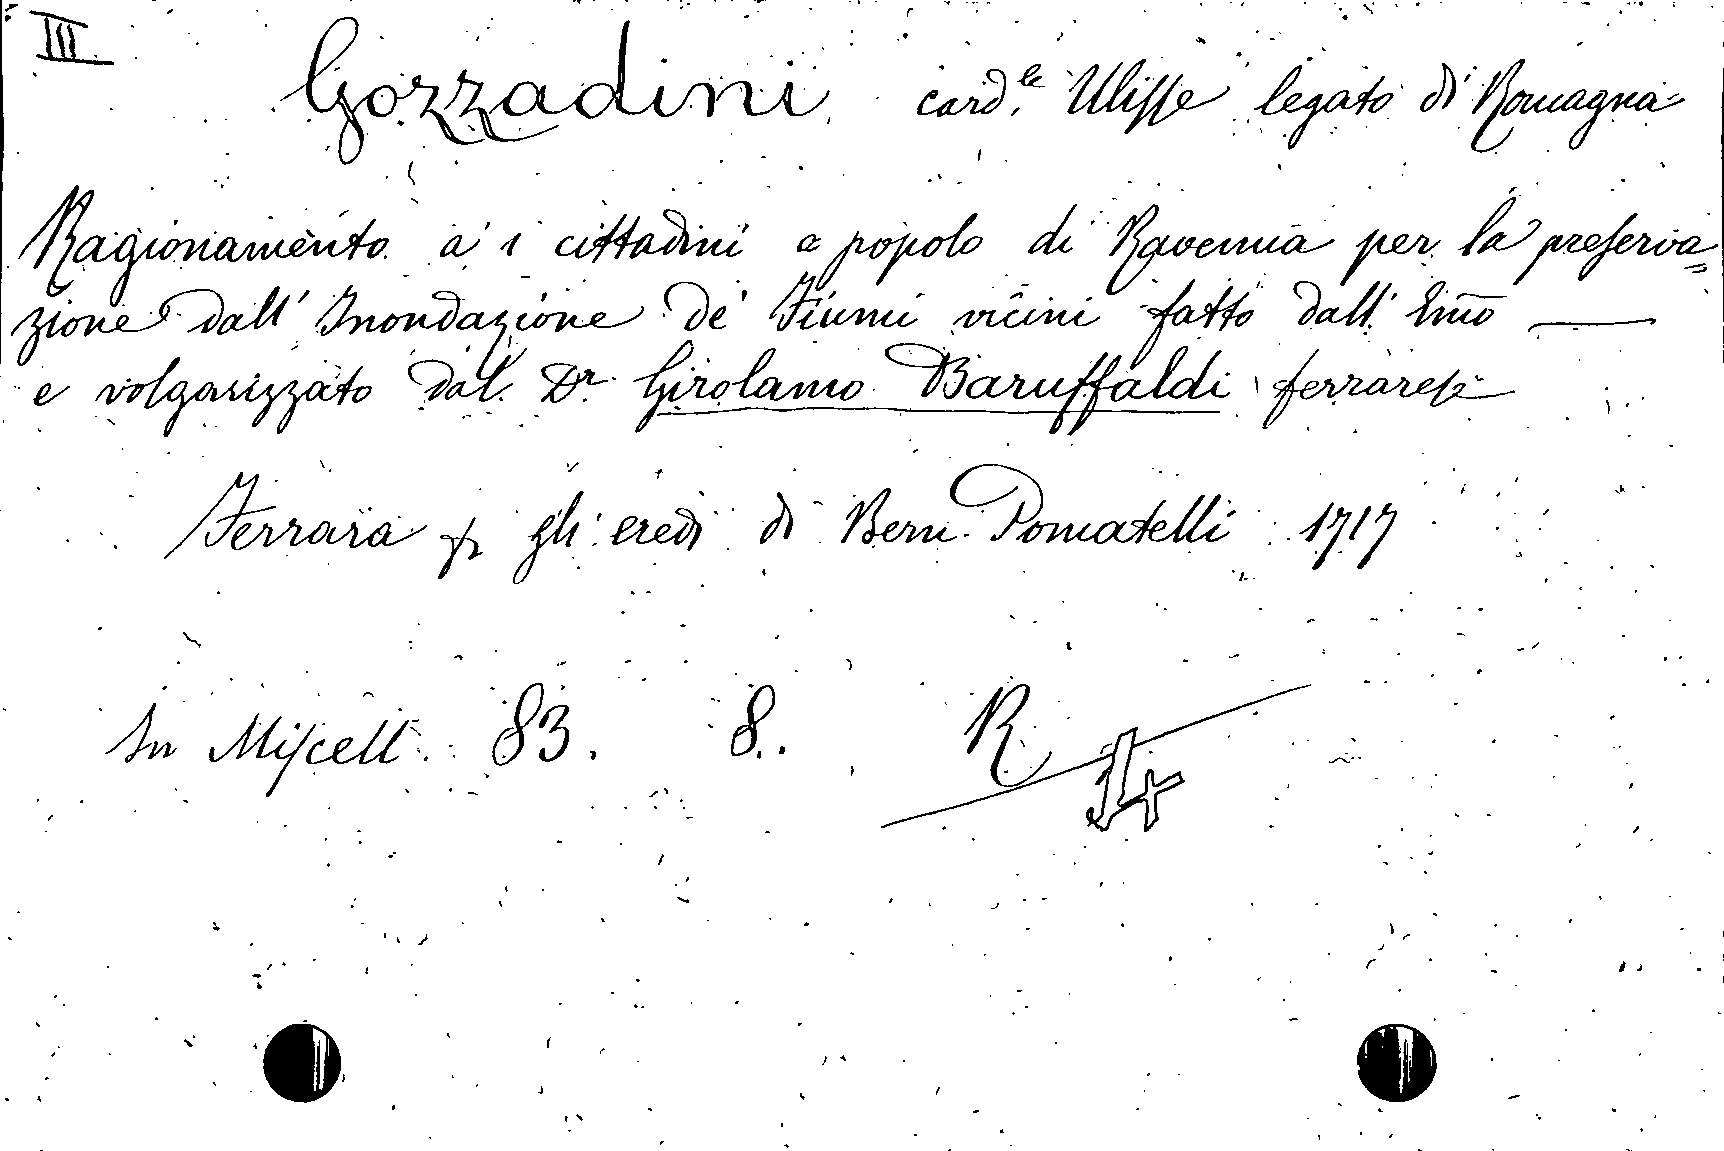 III
Gozzadini card.le Ulisse legato di Romagna
Ragionamento a' i cittadini e popolo di Ravenna per la preserva=
zione dall' Inondazione de' Fiumi vicini fatto dall' Emo ——
e volgarizzato dal Dr Girolamo Baruffaldi ferrarese
Ferrara p gli eredi di Bern. Pomatelli 1717
In Miscell. 83. 8. R